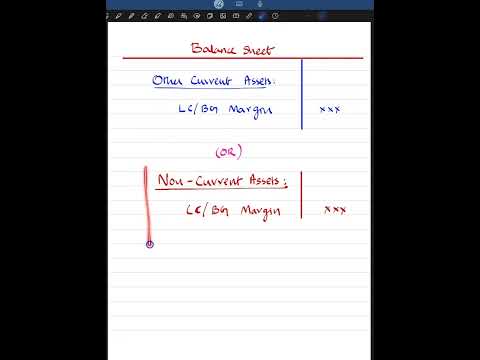 Balance Sheet
Other Current Assets:
LC/BG Margin xxx
(OR)
Non-Current Assets:
LC/BG Margin xxx